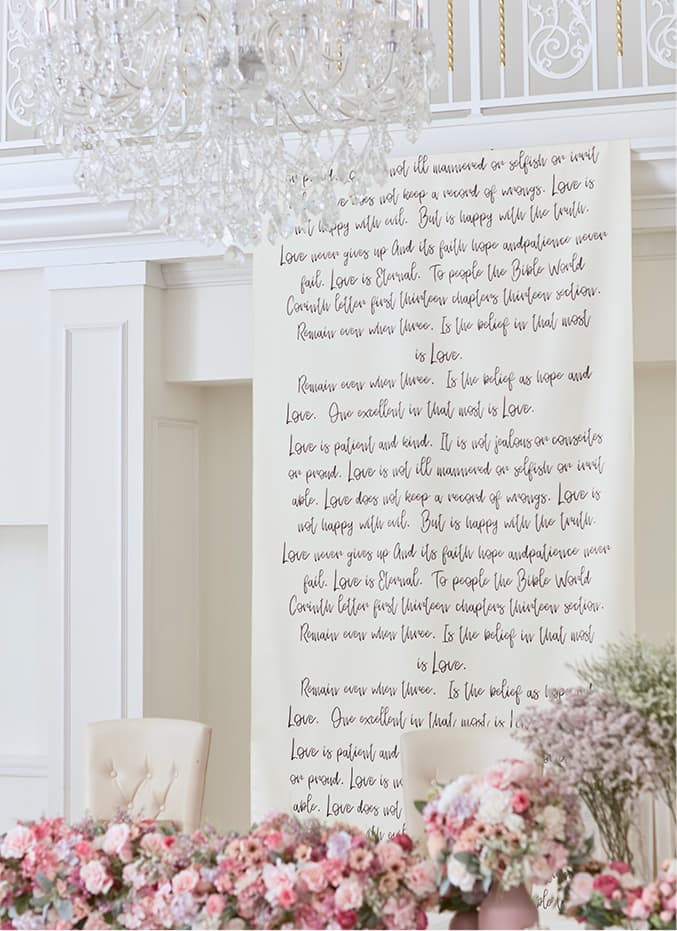 or proud. not ill mannered or selfish or irrit
Love does not keep a record of wrongs. Love is
not happy with evil. But is happy with the truth.
Love never gives up And its faith hope andpatience never
fail. Love is Eternal. To people the Bible World
Corinth letter first thirteen chapters thirteen section.
Remain even when three. Is the belief in that most
is Love.
Remain even when three. Is the belief as hope and
Love. One excellent in that most is Love.
Love is patient and kind. It is not jealous or conseites
or proud. Love is not ill mannered or selfish or irrit
able. Love does not keep a record of wrongs. Love is
not happy with evil. But is happy with the truth.
Love never gives up And its faith hope andpatience never
fail. Love is Eternal. To people the Bible World
Corinth letter first thirteen chapters thirteen section.
Remain even when three. Is the belief in that most
is Love.
Remain even when three. Is the belief as hope
Love. One excellent in that most is
Love is patient and
or proud. Love is
able. Love does not
with